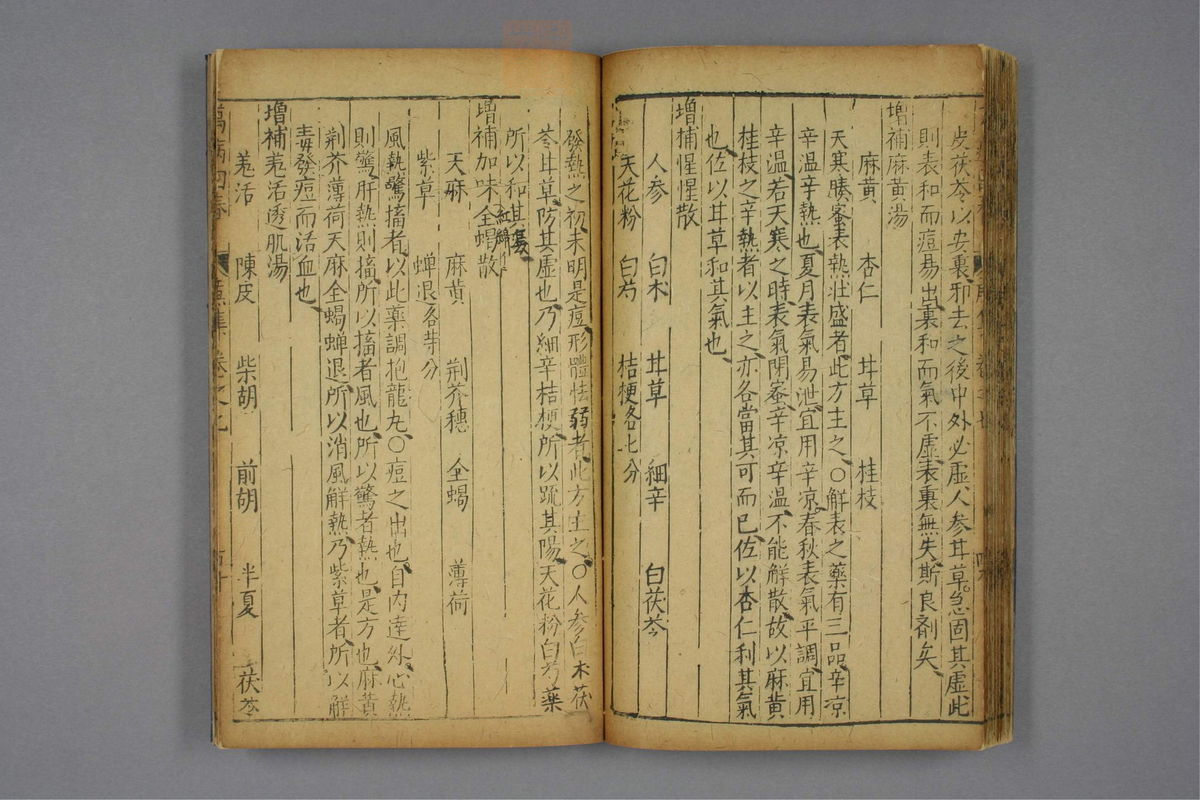 皮茯苓以安裏邪去之後中外必虛人參甘草急固其虛此
則表和而痘易出裏和而氣不虛表裏無失斯良劑矣
增補麻黄湯
麻黄　杏仁　甘草　桂枝
天寒腠蜜表熱壯盛者此方主之〇解表之藥有三品辛凉
辛温辛熱也夏月表氣易泄宜用辛凉春秋表氣平調宜用
辛温若天寒之時表氣閉密辛凉辛温不能解散故以麻黄
桂枝之辛熱者以主之亦各當其可而已佐以杏仁利其氣
也佐以甘草和其氣也
增補惺惺散
人參　白术　甘草　細辛　白茯苓
天花粉　白芍　桔梗各七分
發熱之初未明是痘形體怯弱者此方主之〇人參白术茯
苓甘草防其虛也乃細辛桔梗所以踈其陽天花粉白芍藥
所以和其
增補加味全蝎散
天麻　麻黄　荆芥穗　全蝎　薄荷
紫草　蟬退各等分
風熱驚搐者以此藥調抱龍丸〇痘之出也自内達外心熱
則驚肝熱則搐所以搐者風也所以驚者熱也是方也麻黄
荆芥薄荷天麻全蝎蟬退所以消風解熱乃紫草者所以解
毒發痘而活血也
增補羗活透肌湯
羗活　陳皮　柴胡　前胡　半夏　茯苓
萬病回春